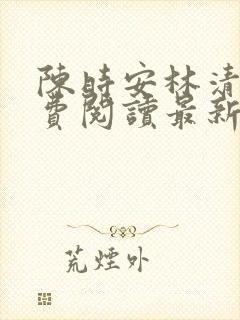 陳時安林清
費閱讀最新
荒煙外